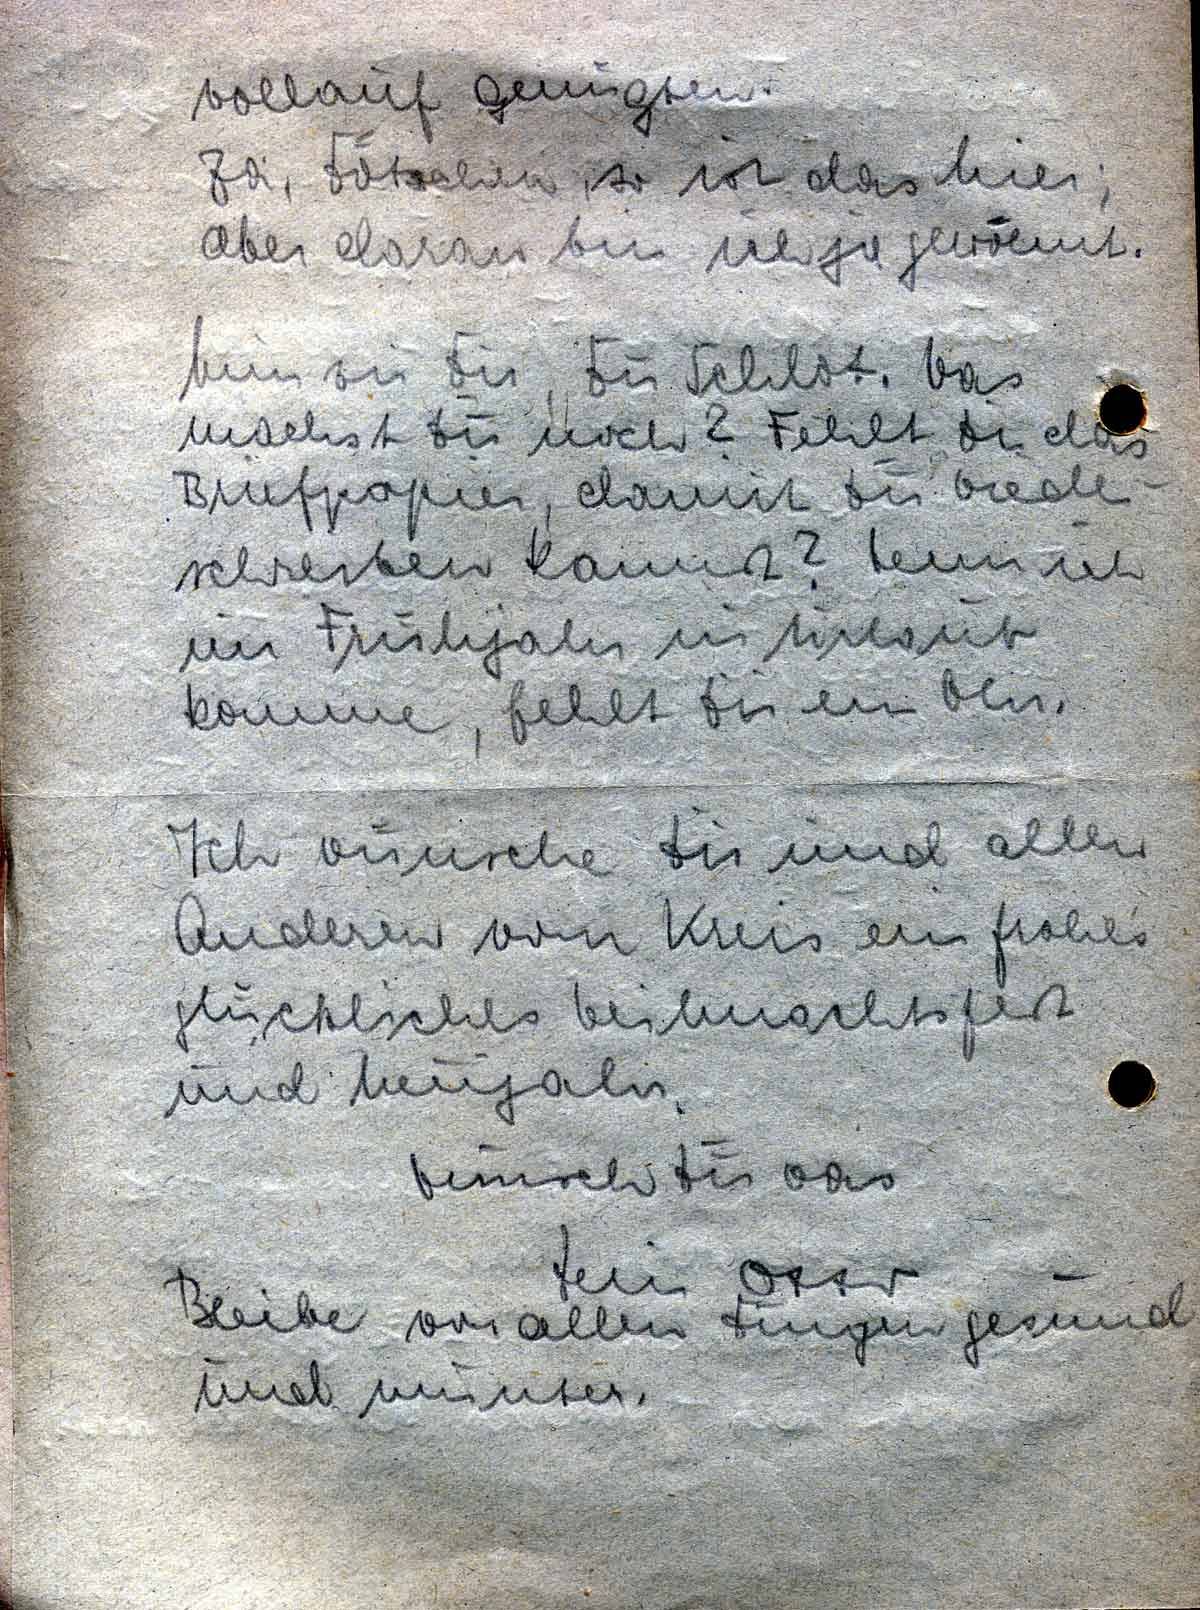 vollauf genügten.
Ja, so ist das hier;
aber daran bin ich ja gewöhnt.
Nun zu Dir, Du selbst. Was
machst Du noch? Fehlt Dir das
Briefpapier, damit Du wieder
schreiben kannst? Wenn ich
im Frühjahr in Urlaub
komme, fehlt Dir ein
Ich wünsche Dir und allen
Anderen vom Kreis ein frohes
glückliches Weihnachtsfest
und Neujahr.
Wünscht Dir das
Dein Otto
Bleibe vor allen Dingen gesund
und munter.